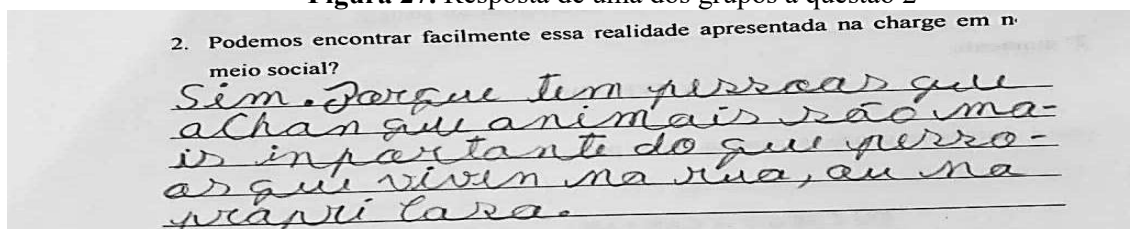 Figura 27. Resposta de uma dos grupos à questão 2
2. Podemos encontrar facilmente essa realidade apresentada na charge em n
meio social?
Sim. Porque tem pessoas que
achan que animais são ma-
is inportante do que pesso-
as que viven na rua, ou na
própri casa.